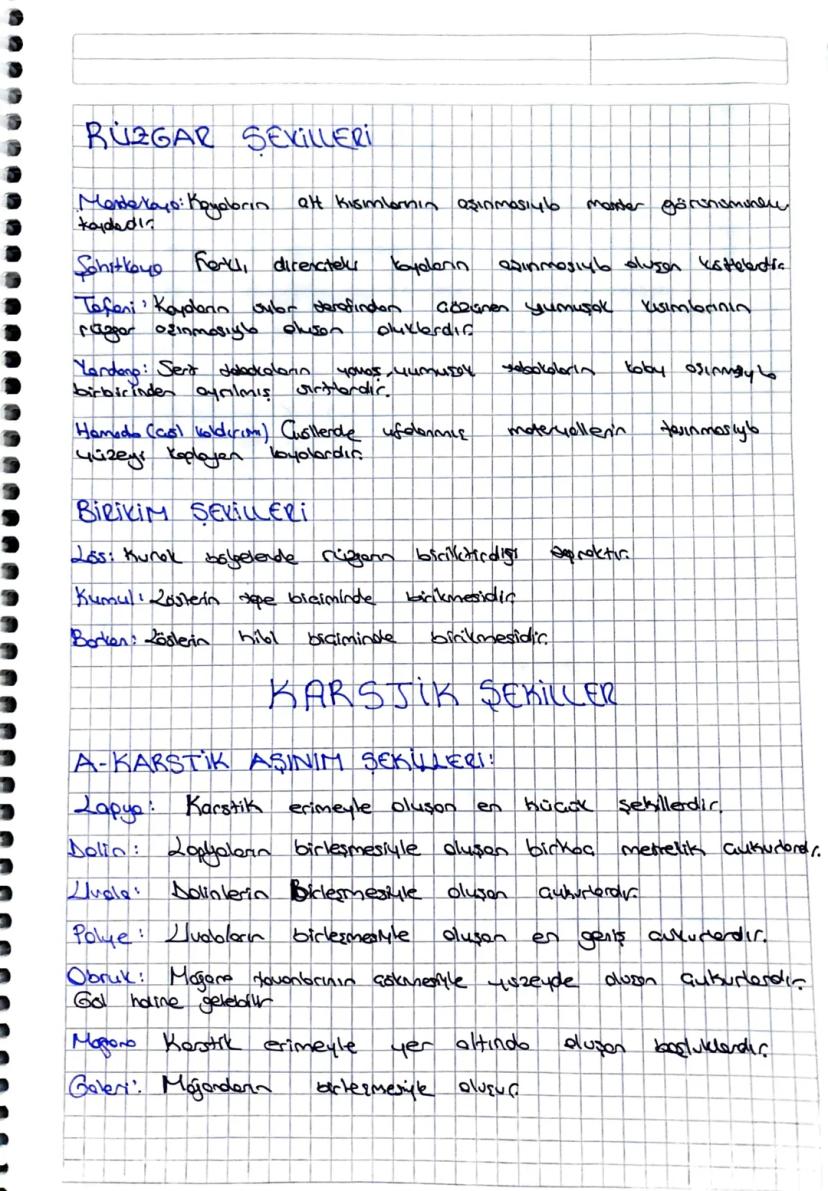 RÜZGAR ŞEKİLLERİ
Mantarkaya: Kayaların alt kısımlarının aşınmasıyla mantar görünümündeki
kayadır.
Şahitkaya Farklı dirençteki kayaların aşınmasıyla oluşan kütlelerdir.
Tafoni: Kayaların sular tarafından çözünen yumuşak kısımlarının
rüzgar aşınmasıyla oluşan oluklardır.
Yardang: Sert tabakaların yavaş, yumuşak tabakaların kolay aşınmasıyla
birbirinden ayrılmış sırtlardır.
Hamada (çöl kaldırımı) Çöllerde ufalanmış materyallerin taşınmasıyla
yüzeyi kaplayan kayalardır.
BİRİKİM ŞEKİLLERİ
Löss: Kurak bölgelerde rüzgarın biriktirdiği topraktır.
Kumul: Löslerin tepe biçiminde birikmesidir.
Barkan: Löslerin hilal biçiminde birikmesidir.
KARSTİK ŞEKİLLER
A-KARSTİK AŞINIM ŞEKİLLERİ:
Lapya: Karstik erimeyle oluşan en küçük şekillerdir.
Dolin: Lapyaların birleşmesiyle oluşan birkaç metrelik çukurlardır.
Uvala: Dolinlerin Birleşmesiyle oluşan çukurlardır.
Polye: Uvaların birleşmesiyle oluşan en geniş çukurlardır.
Obruk: Mağara tavanlarının çökmesiyle yüzeyde oluşan çukurlardır.
Göl haline gelebilir
Mağara Karstik erimeyle yer altında oluşan boşluklardır.
Galeri: Mağaraların birleşmesiyle oluşur.